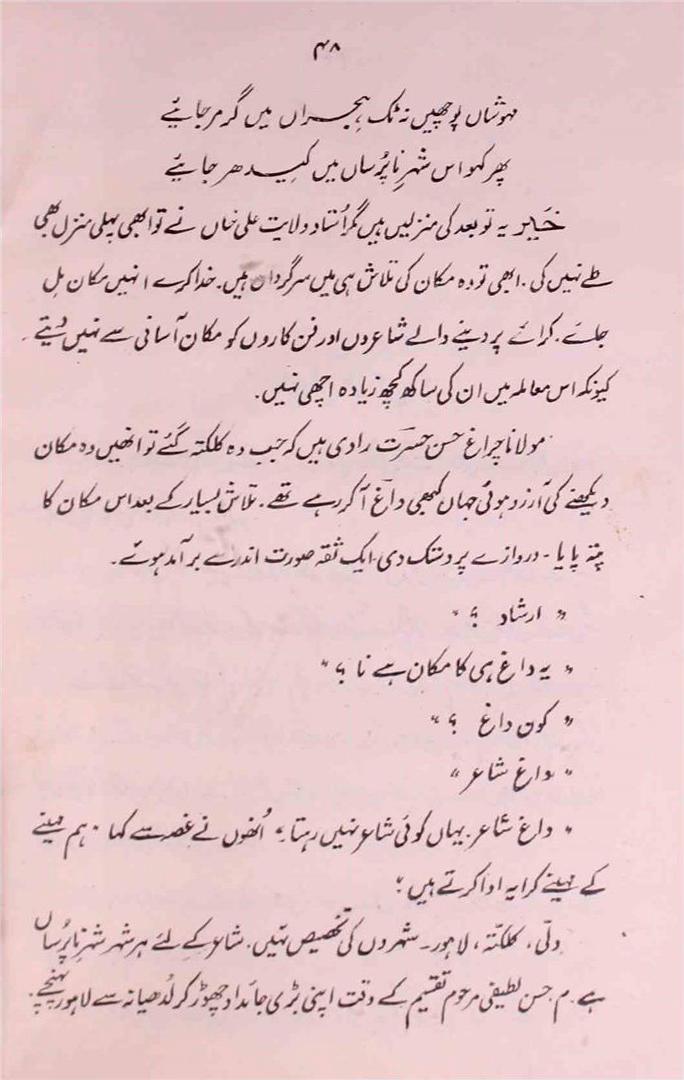 ۴۸
مہوشاں پوچھیں نہ ٹک ہجراں میں گر مر جائیے
پھر کہو اس شہرِ ناپُرساں میں کیدھر جائیے
خیر یہ تو بعد کی منزلیں ہیں مگر اُستاد ولایت علی خاں نے تو ابھی پہلی منزل بھی
طے نہیں کی۔ ابھی تو وہ مکان کی تلاش ہی میں سرگرداں ہیں۔ خدا کرے انہیں مکان مل
جائے۔ کرائے پر دینے والے شاعروں اور فن کاروں کو مکان آسانی سے نہیں دیتے۔
کیونکہ اس معاملہ میں ان کی ساکھ کچھ زیادہ اچھی نہیں۔
مولانا چراغ حسن حسرت راوی ہیں کہ جب وہ کلکتہ گئے تو انھیں وہ مکان
دیکھنے کی آرزو ہوئی جہاں کبھی داغ آ کر رہے تھے۔ تلاش بسیار کے بعد اس مکان کا
پتہ پایا۔ دروازے پر دستک دی۔ ایک ثقہ صورت اندر سے برآمد ہوئے۔
"ارشاد ؟"
"یہ داغ ہی کا مکان ہے نا ؟"
"کون داغ ؟"
"داغ شاعر"
"داغ شاعر۔ یہاں کوئی شاعر نہیں رہتا۔" اُنھوں نے غصہ سے کہا "ہم مہینے
کے مہینے کرایہ ادا کرتے ہیں"
دلّی، کلکتہ، لاہور۔ شہروں کی تخصیص نہیں۔ شاعر کے لئے ہر شہر شہرِ ناپُرساں
ہے۔ م حسن لطیفی مرحوم تقسیم کے وقت اپنی بڑی جائداد چھوڑ کر لُدھیانہ سے لاہور پہنچے۔